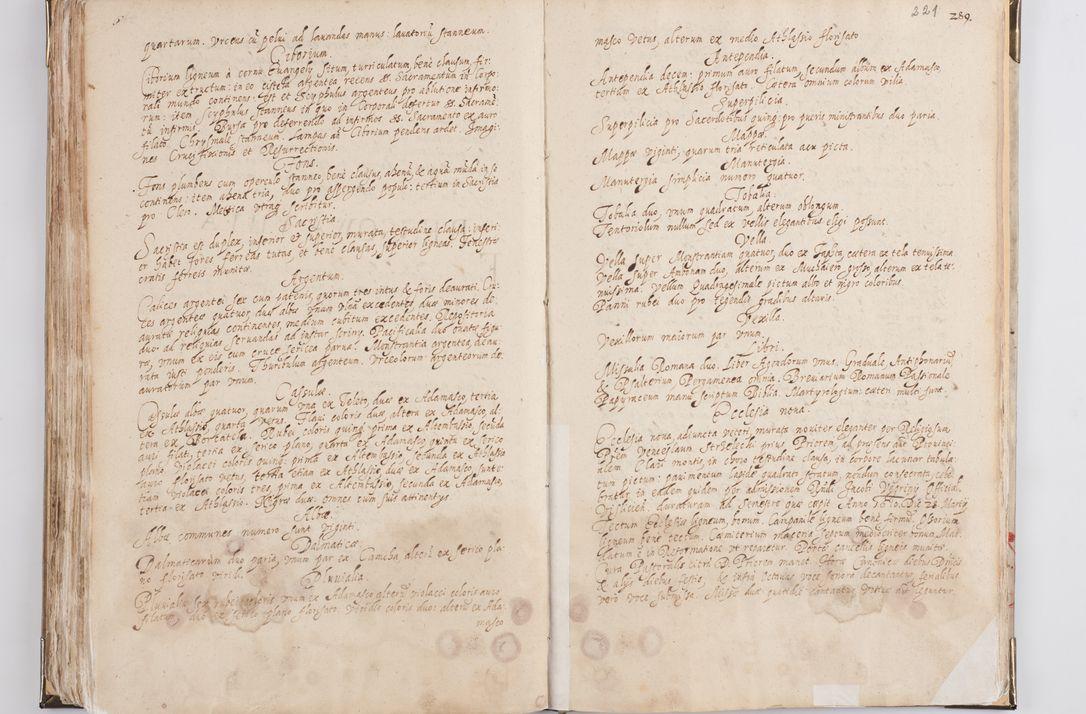 quartarum. Urceus cũ pelui ad lauandas manus: lauatoriũ stanneum.
Ciborium.
Ciborium ligneum à cornu Euangelij situm, turriculatum, benè clausum, fir:
miter extructum: in eo cistella argentea recens SS. Sacramentum in Corpo:
rali mundo continens. Est et Scyphulus argenteus pro ablutione infirmo:
rum: item Scyphulus stanneus in quo in Corporali defertur SS. Sacramē:
tũ infirmis. Bursa pro deferrendo ad infirmos SS. Sacramento ex auro
filato. Chrysmale stanneum. Lampas an Ciborium pendens ardet. Imagi:
nes Crucifixionis et Resurrectionis.
Fons.
Fons plumbeus cum operculo stanneo, benè clausus, aquã mũdã in se
continens: item ahena tria, duo pro aspergendo populo: tertium in Sacristia
pro Clero. Metrica utraq scribitur.
Sacristia.
Sacristia est duplex, inferior & superior, murata, testudine clausa: inferi:
or habet fores ferreas tutas, et benè clausas, superior ligneas. Fenestræ
cratis ferreis munitæ.
Argentum.
Calices argentei sex cum patenis, quorum tres intus & foris deaurati. Cru:
ces argenteæ quatuor, duæ altæ vnum vlnã excedentes, duæ minores de:
auratæ reliquias continentes, medium cubitum excedentes. Repositoria
duo ad reliquias seruandas ad instar Pacificalia duo ornatæ figu:
ra, vnum ex eis cum cruce sericea parua. Monstrantia argentea, deau:
rata iusti ponderis. Thuribulum argenteum. Vrceolorum argenteorum de:
auratorum par vnum.
Casulæ.
Casulæ albæ quatuor, quarum vna ex Teleto, duæ ex Adamasco, tertia
ex Athlassio, quarta vetus. Flaui coloris duæ, altera ex Adamasco, al:
tera ex Portatela. Rubei coloris, quinq prima ex Altembassio, secũda
auri filat, tertia ex Serico plano, quarta ex Adamasco quinta ex serico
plano. Violacei coloris quinq: prima ex Altembassio, secunda ex Athlassio
auro florisato vetus, tertia etiam ex Athlassio, duæ ex Adamasco, sunt e:
tiam violacei coloris tres, prima ex Altembassio, secunda ex Adamasco,
tertia ex Athlassio. Nigræ duæ: omnes cum suis attinentijs.
Albæ.
Albæ communes numero sunt viginti.
Dalmaticæ.
Dalmaticarum duo paria, vnum par ex Camcha alteri ex serico pla:
no florisato viridi.
Pluuialia.
Pluuialia sex rubei coloris vnum ex Adamasco alterũ violacei coloris auro
filatum, duo ex serico plano florisato. Viridis coloris duo: alterũ ex Ada:
masco

221 289.
masco vetus, alterum ex medio Athlassio florisato
Antependia.
Antependia decem: primum auro filatum, secundum album ex Adamasco,
tertium ex Athlassio florisato. Cætera omnium colorum vilia.
Superpilicia.
Superpilicia pro Sacerdotibus quinq: pro pueris ministrantibus duo paria.
Mappæ.
Mappæ viginti, quarum tria reticulata acu picta.
Manutergia.
Manutergia simplicia numero quatuor.
Tobalia.
Tobalia duo, vnum quadratum, alterum oblongum.
Tentoriolum nullum sed ex vellis elegantibus erigi possunt.
Vella
Vella super Monstrantiam quatuor, duo ex Tapsta, cætera ex tela tenuissima
Vella super Ambonam duo, alterum ex Muchaiero grosso, alterum ex tela te:
nuissima. vellum Quadragesimale pictum albo et nigro coloribus.
Panni rubei duo pro tegendis gradibus altaris.
Vexilla.
Vexillorum maiorum par vnum.
Libri.
Missalia Romana duo. Liber Agendorum vnus. Graduale, Antiphonariũ
& Psalterium Pergamenea omnia. Breuiarium Romanum. Passionale
Papyraceum manu scriptum Biblia. Martyrologium: cæteri multi sunt.
Ecclesia noua.
Ecclesia noua, adiuncta veteri, murata nouiter eleganter per Religiosum
Prēm Venceslaum prius Priorem, ad præsens aũt Prouinci:
alem. Claui montis, in choro testudine clausa, in corpore lacunar tabula:
tum pictum: pauimentum lapide quadrato stratum, nondum consecrata, celeb:
bratũr in eadem quidem per admissionem Rñdi Jacobi Official.
Visliciẽn. duraturam ad Semestre quæ cæpit Anno 1610. Die 28. Martij
Tectum Ecclesiæ ligneum, bonum. Campanile ligneum benè firmũ, Ossorium
ligneum benè tectum. Cæmiterium maceria septum mediocriter bona. Man:
datum in Reformatione vt reparetur. Porta cancellis ligneis munita.
Cura Pastoralis circa D. Priorem manet. Horæ Canonicæ diebus Dñicis
& alijs diebus festis, & infra Octauas voce sonora decantantur, ferialibus
vero voce submissa. Missæ duæ quotidiè cantantur vetus aũt legantur.